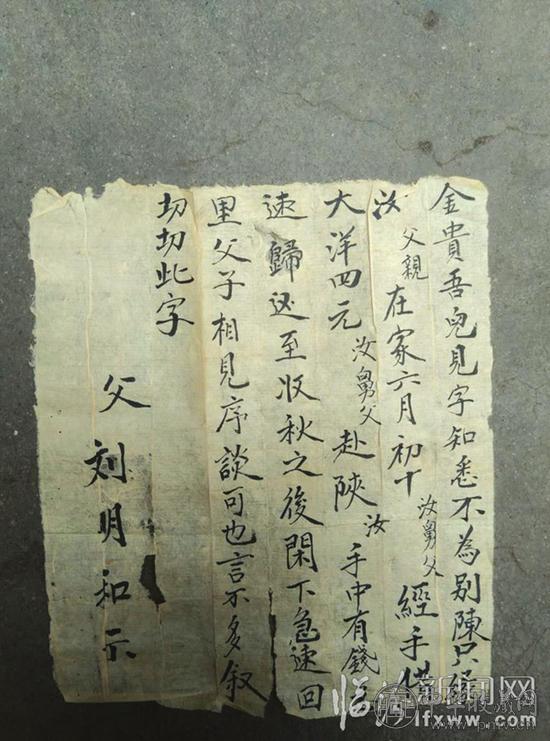 金貴吾兒見字知悉不為别陳只緣
汝父親在家六月初十汝舅父經手借
大洋四元汝舅父赴陝汝手中有錢
速歸还至收秋之後閑下急速回
里父子相見序談可也言不多叙
切切此字
父刘明和示
临汾新闻网
lfxww.com